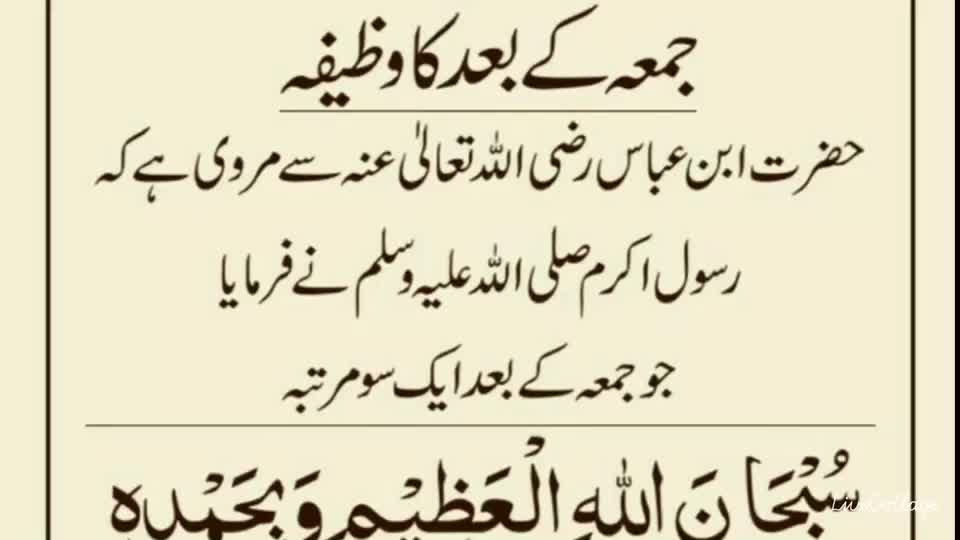 جمعہ کے بعد کا وظیفہ
حضرت ابن عباس رضی اللہ تعالیٰ عنہ سے مروی ہے کہ
رسول اکرم صلی اللہ علیہ وسلم نے فرمایا
جو جمعہ کے بعد ایک سو مرتبہ
سُبْحَانَ اللهِ الْعَظِيْمِ وَبِحَمْدِهِ